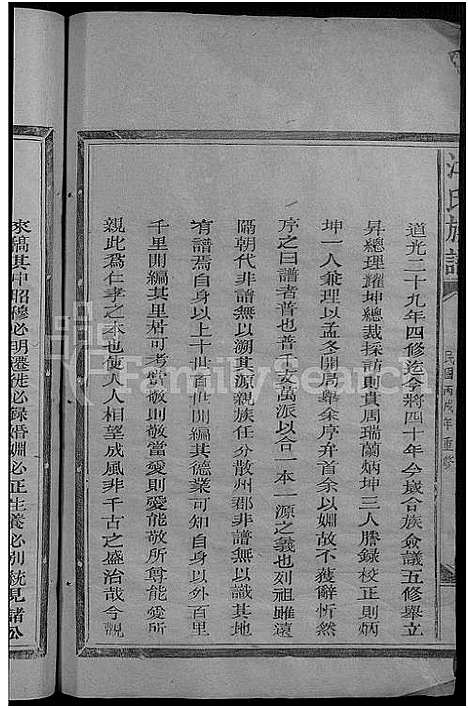 氏族譜
民國丙戌年重修
道光二十九年四修迄今將四十年今歲合族僉議五修舉立
昇總理耀坤總裁採訪則貴周瑞蘭炳坤三人謄錄校正則炳
坤一人兼理以孟冬開局舉余序弁首余以姻故不獲辭忻然
序之曰譜者普也普千支萬派以合一本一源之義也列祖雖遠
隔朝代非譜無以溯其源親族任分散州郡非譜無以識其地
有譜焉自身以上十世百世開編其德業可知自身以外百里
千里開編其里居可考當敬則敬當愛則愛能敬所尊能愛所
親此爲仁孝之本也使人人相望成風非千古之盛治哉今觀
來稿其中昭穆必明遷徙必錄婚姻必正生養必別統見諸公
FamilySearch